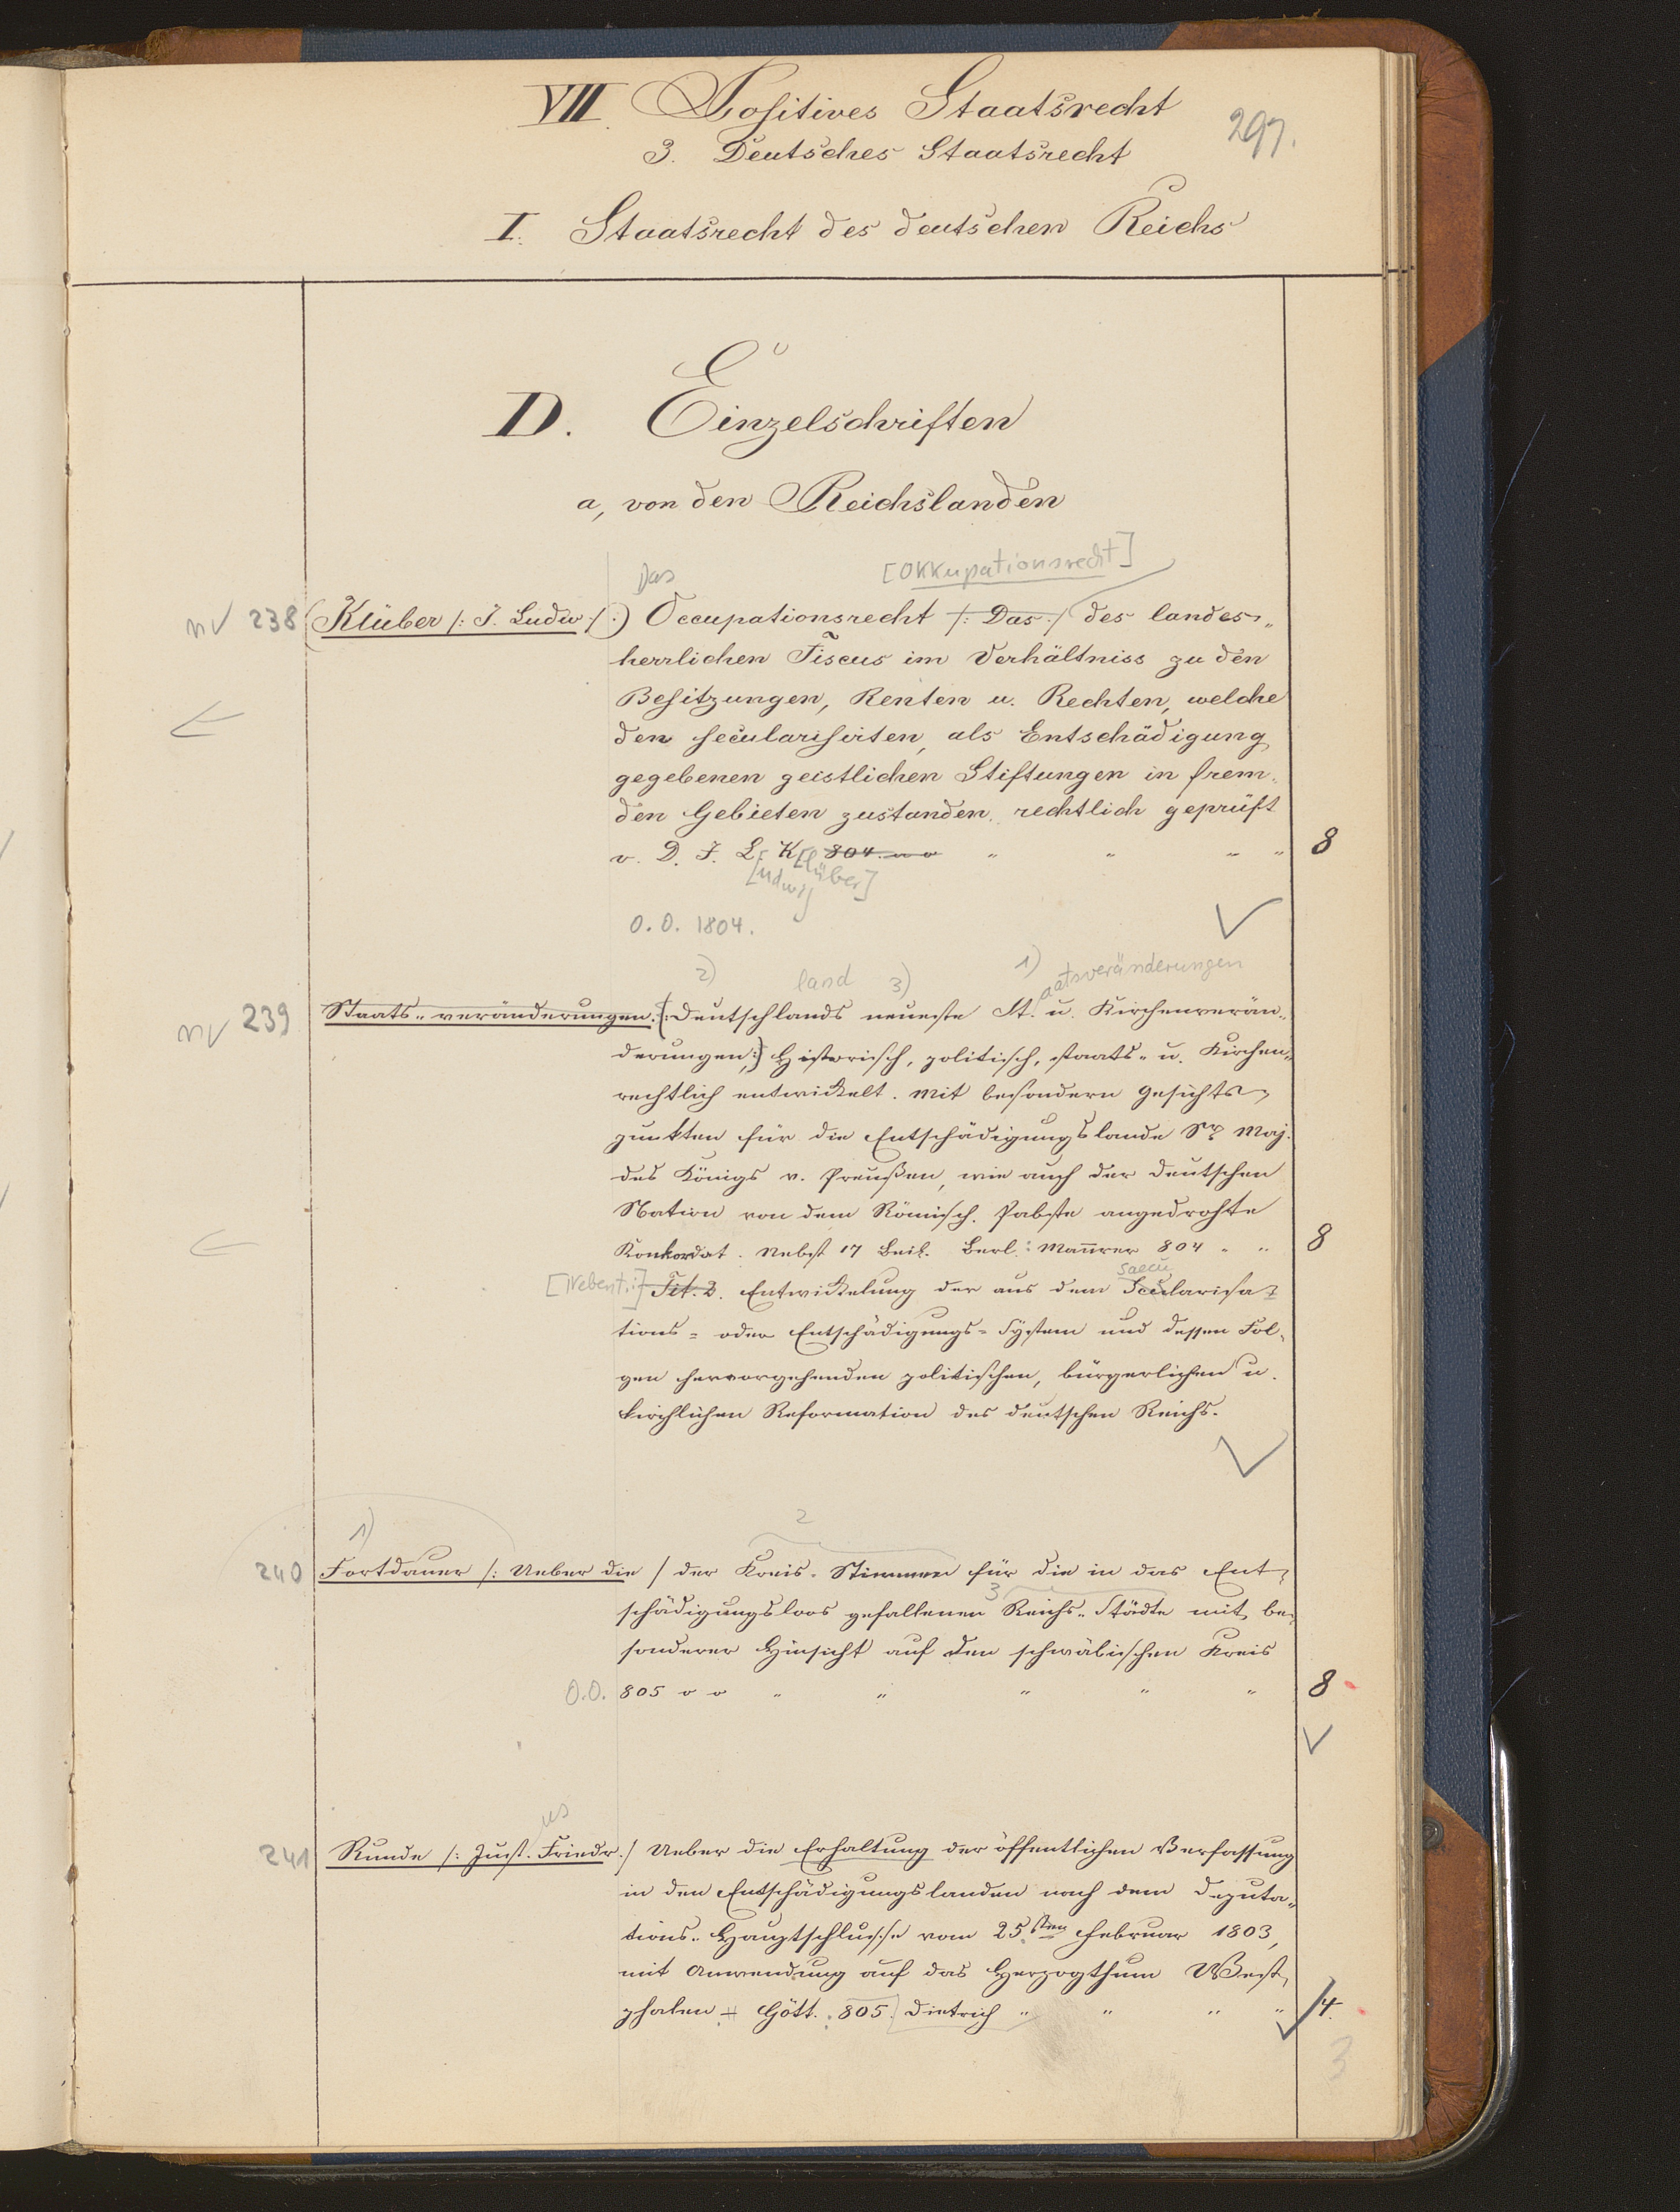 VII. Positives Staatsrecht
297.
3. Deutsches Staatsrecht
I. Staatsrecht des deutschen Reichs
D. Einzelschriften
a, von den Reichslanden
Das [Okkupationsrecht]
nv 238 (Klüber /: J. Ludw :/:) Occupationsrecht /: Das :/ des landes„
herrlichen Fiscus im Verhältniss zu den
Besitzungen, Renten u. Rechten, welche
den secularisirten, als Entschädigung
gegebenen geistlichen Stiftungen in frem„
den Gebieten zustanden, rechtlich geprüft
v. D. J. L. K[lüber] 804. „ „ „ „ 8
[udwig]
O.O. 1804.
2) land 3) 1) aatsveränderungen
nv 239 Staats„veränderungen. (: Deutschlands neueste St. u. Kirchenverän„
derungen,:) Historisch, politisch, staats- u. Kirchen„
rechtlich entwickelt. Mit besondern Gesichts„
punkten für die Entschädigungslande Sr Maj.
des Königs v. Preußen, wie auch der deutschen
Nation von dem Römisch. Pabste angedrohte
Konkordat. Nebst 17 Beil. Berl.: Maurer 804 „ „ 8
saecu
[Nebent.:] Tit. 2. Entwickelung der aus dem Secularisa„
tions- oder Entschädigungs-System und dessen Fol„
gen hervorgehenden politischen, bürgerlichen u.
kirchlichen Reformation des deutschen Reichs.
1) 2
240 Fortdauer /: Ueber die / der Kreis-Stimmen für die in das Ent„
3
schädigungsloos gefallenen Reichs-Städte mit be„
sonderer Hinsicht auf den schwäbischen Kreis
O.O. 805 „ „ „ „ „ 8
us
241 Runde /: Just. Friedr. :/ Ueber die Erhaltung der öffentlichen Verfassung
in den Entschädigungslanden nach dem Deputa„
tions„Hauptschlusse vom 25sten Februar 1803,
mit Anwendung auf das Herzogthum West„
phalen. Gött. 805. Dietrich „ „ „ „ 4.
3